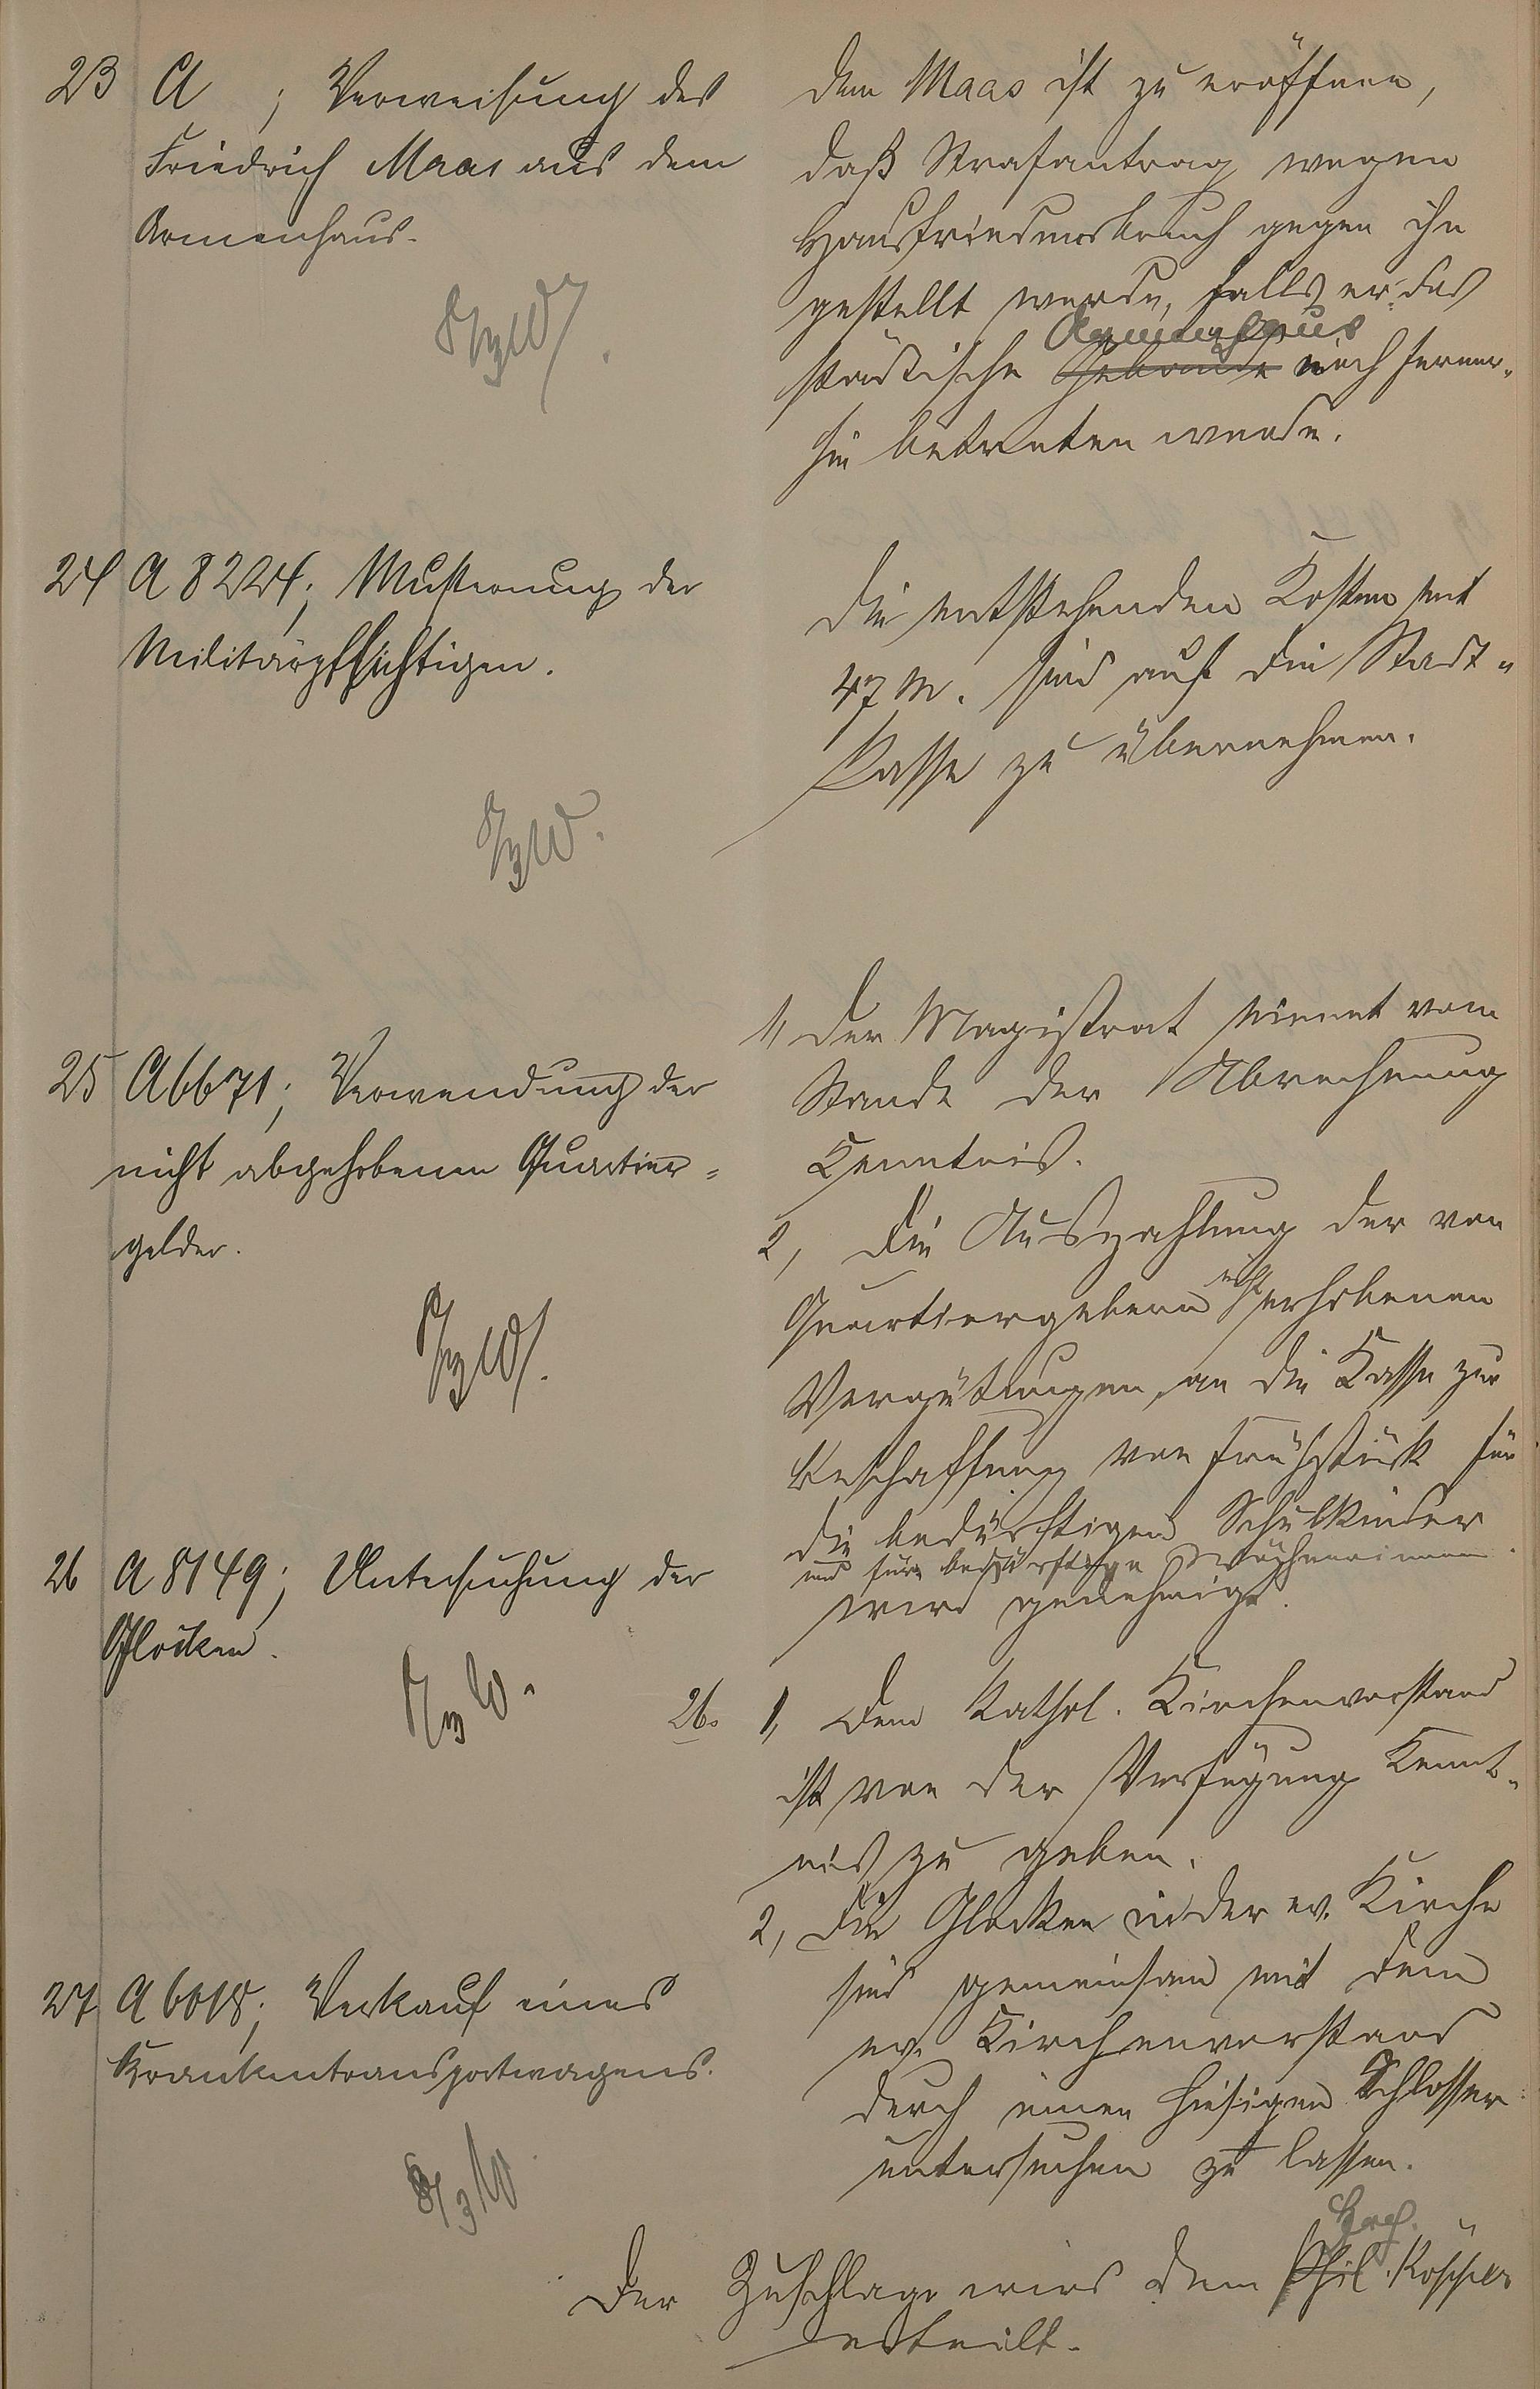 23 A ; Verweisung des
Friedrich Maas aus dem
Armenhaus.
Dem Maas ist zu eröffnen,
daß Strafantrag wegen
Hausfriedensbruch gegen ihn
gestellt werde, falls er das
städtische Armenhaus noch ferner-
hin betreten werde.
24 A 8224; Musterung der
Militärpflichtigen.
Die entstehenden Kosten mit
47 M. sind auf die Stadt-
kasse zu übernehmen.
25 A 6671; Verwendung der
nicht abgehobenen Quartier-
gelder.
1, Der Magistrat nimmt vom
Stande der Abrechnung
Kenntnis.
2, Die Auszahlung der von
Quartiergebern nicht erhobenen
Vergütungen, an die Kasse zur
Beschaffung von Frühstück für
die bedürftigen Schulkinder
und für bedürftige Wöchnerinnen
wird genehmigt.
26 A 8149; Untersuchung der
Glocken.
26. 1, Dem kathol. Kirchenvorstand
ist von der Verfügung Kennt-
nis zu geben.
2, Die Glocken in der ev. Kirche
sind gemeinsam mit dem
ev. Kirchenvorstand
durch einen hiesigen Schlosser
untersuchen zu lassen.
27 A 6018; Verkauf eines
Krankentransportwagens.
Der Zuschlag wird dem Phil. Köppler
erteilt.